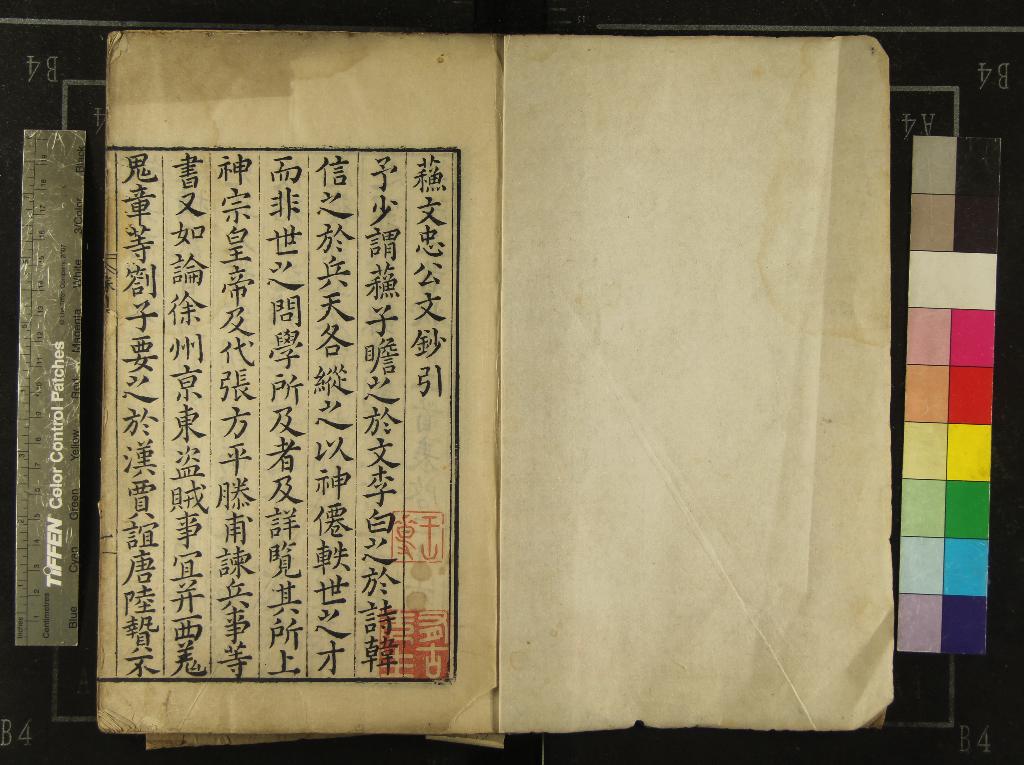 蘓文忠公文鈔引
予少謂蘓子瞻之於文李白之於詩韓
信之於兵天各縱之以神僊軼世之才
而非世之問學所及者及詳覽其所上
神宗皇帝及代張方平滕甫諫兵事等
書又如論徐州京東盗賊事冝并西羗
鬼章等劄子要之於漢賈誼唐陸贄不
Inches
Centimetres
TIFFEN Color Control Patches
Blue
Cyan
Green
Yellow
Red
Magenta
White
3/Color
Black
B4
B4
A4
B4
B4